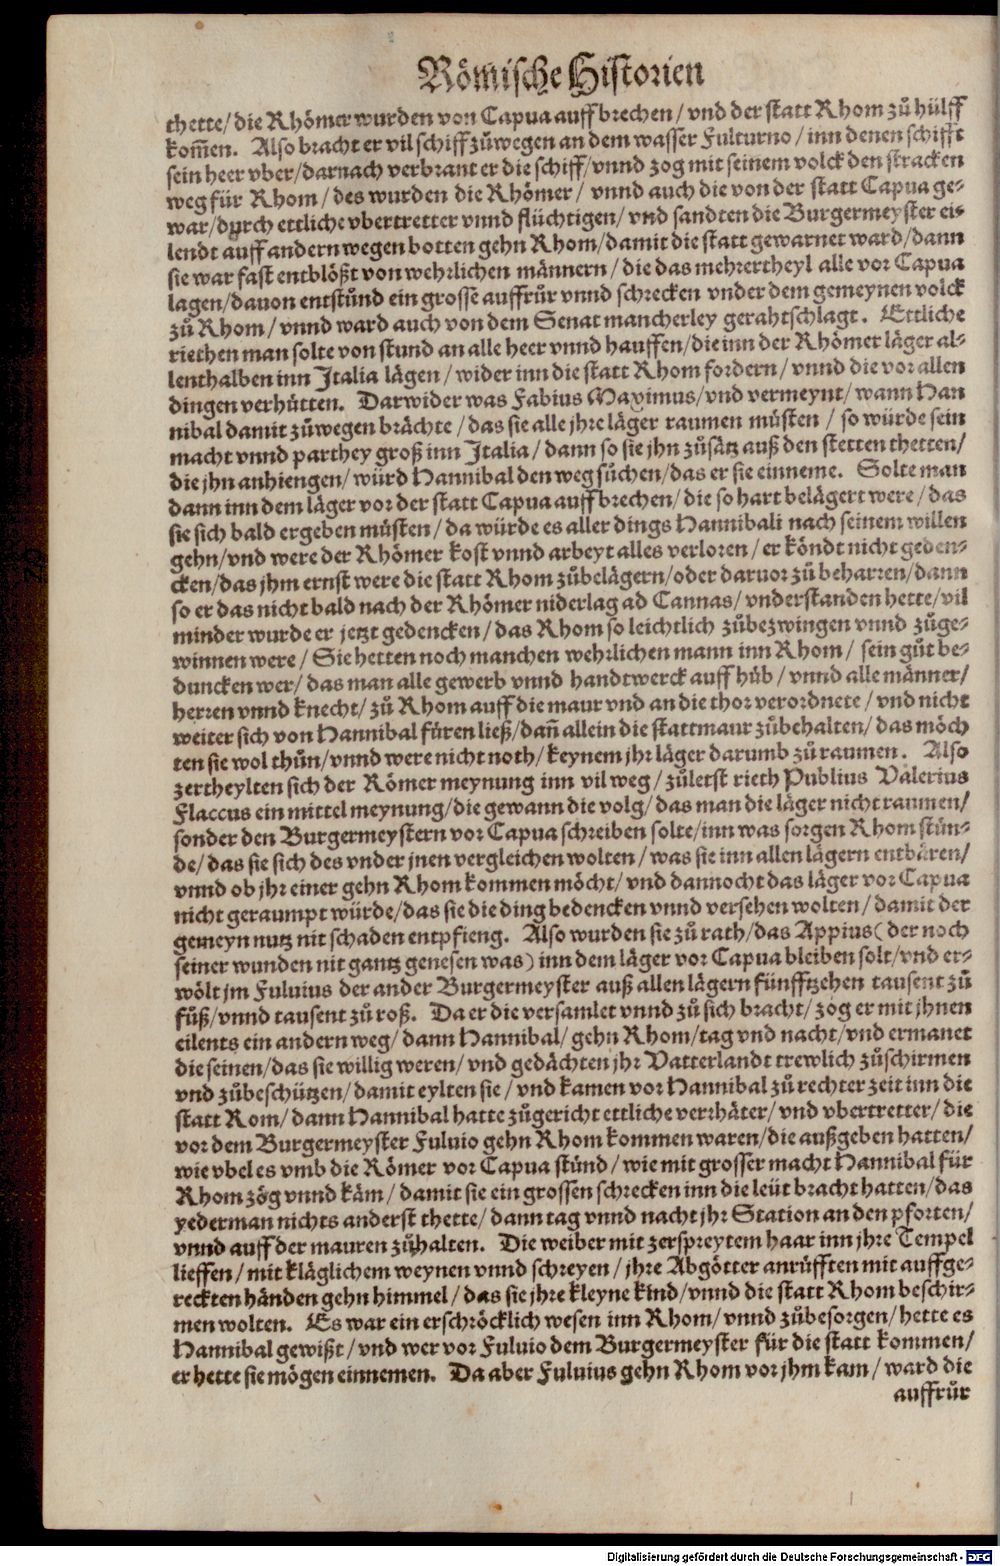 Römische Historien
thette/ die Rhömer wurden von Capua auff brechen/ vnd der statt Rhom zů hülff
kom̃en. Also bracht er vil schiff zůwegen an dem wasser Fulturno/ inn denen schifft
sein heer vber/ darnach verbrant er die schiff/ vnnd zog mit seinem volck den stracken
weg für Rhom/ des wurden die Rhömer/ vnnd auch die von der statt Capua ge-
war/ durch ettliche vbertretter vnnd flüchtigen/ vnd sandten die Burgermeyster ei-
lendt auff andern wegen botten gehn Rhom/ damit die statt gewarnet ward/ dann
sie war fast entblößt von wehrlichen männern/ die das mehrertheyl alle vor Capua
lagen/ dauon entstůnd ein grosse auffrůr vnnd schrecken vnder dem gemeynen volck
zů Rhom/ vnnd ward auch von dem Senat mancherley gerahtschlagt. Ettliche
riethen man solte von stund an alle heer vnnd hauffen/ die inn der Rhömer läger al-
lenthalben inn Italia lägen/ wider inn die statt Rhom fordern/ vnnd die vor allen
dingen verhütten. Darwider was Fabius Maximus/ vnd vermeynt/ wann Han
nibal damit zůwegen brächte/ das sie alle jhre läger raumen müsten/ so würde sein
macht vnnd parthey groß inn Italia/ dann so sie jhn zůsätz auß den stetten thetten/
die jhn anhiengen/ würd Hannibal den weg sůchen/ das er sie einneme. Solte man
dann inn dem läger vor der statt Capua auff brechen/ die so hart belägert were/ das
sie sich bald ergeben müsten/ da würde es aller dings Hannibali nach seinem willen
gehn/ vnd were der Rhömer kost vnnd arbeyt alles verloren/ er köndt nicht geden-
cken/ das jhm ernst were die statt Rhom zůbelägern/ oder daruor zů beharren/ dann
so er das nicht bald nach der Rhömer niderlag ad Cannas/ vnderstanden hette/ vil
minder wurde er jetzt gedencken/ das Rhom so leichtlich zůbezwingen vnnd zůge-
winnen were/ Sie hetten noch manchen wehrlichen mann inn Rhom/ sein gůt be-
duncken wer/ das man alle gewerb vnnd handtwerck auff hůb/ vnnd alle männer/
herren vnnd knecht/ zů Rhom auff die maur vnd an die thor verordnete/ vnd nicht
weiter sich von Hannibal füren ließ/ dañ allein die stattmaur zůbehalten/ das möch
ten sie wol thůn/ vnnd were nicht noth/ keynem jhr läger darumb zů raumen. Also
zertheylten sich der Römer meynung inn vil weg/ zůletst rieth Publius Valerius
Flaccus ein mittel meynung/ die gewann die volg/ das man die läger nicht raumen/
sonder den Burgermeystern vor Capua schreiben solte/ inn was sorgen Rhom stün-
de/ das sie sich des vnder jnen vergleichen wolten/ was sie inn allen lägern entbären/
vnnd ob jhr einer gehn Rhom kommen möcht/ vnd dannocht das läger vor Capua
nicht geraumpt würde/ das sie die ding bedencken vnnd versehen wolten/ damit der
gemeyn nutz nit schaden entpfieng. Also wurden sie zů rath/ das Appius (der noch
seiner wunden nit gantz genesen was) inn dem läger vor Capua bleiben solt/ vnd er-
wölt jm Fuluius der ander Burgermeyster auß allen lägern fünfftzehen tausent zů
fůß/ vnnd tausent zů roß. Da er die versamlet vnnd zů sich bracht/ zog er mit jhnen
eilents ein andern weg/ dann Hannibal/ gehn Rhom/ tag vnd nacht/ vnd ermanet
die seinen/ das sie willig weren/ vnd gedächten jhr Vatterlandt trewlich zůschirmen
vnd zůbeschützen/ damit eylten sie/ vnd kamen vor Hannibal zů rechter zeit inn die
statt Rom/ dann Hannibal hatte zůgericht ettliche verrhäter/ vnd vbertretter/ die
vor dem Burgermeyster Fuluio gehn Rhom kommen waren/ die außgeben hatten/
wie vbel es vmb die Römer vor Capua stünd/ wie mit grosser macht Hannibal für
Rhom zög vnnd käm/ damit sie ein grossen schrecken inn die leüt bracht hatten/ das
yederman nichts anderst thette/ dann tag vnnd nacht jhr Station an den pforten/
vnnd auff der mauren zůhalten. Die weiber mit zerspreytem haar inn jhre Tempel
lieffen/ mit kläglichem weynen vnnd schreyen/ jhre Abgötter anrüfften mit auffge-
reckten händen gehn himmel/ das sie jhre kleyne kind/ vnnd die statt Rhom beschir-
men wolten. Es war ein erschröcklich wesen inn Rhom/ vnnd zůbesorgen/ hette es
Hannibal gewißt/ vnd wer vor Fuluio dem Burgermeyster für die statt kommen/
er hette sie mögen einnemen. Da aber Fuluius gehn Rhom vor jhm kam/ ward die
auffrůr
Digitalisierung gefördert durch die Deutsche Forschungsgemeinschaft - DFG